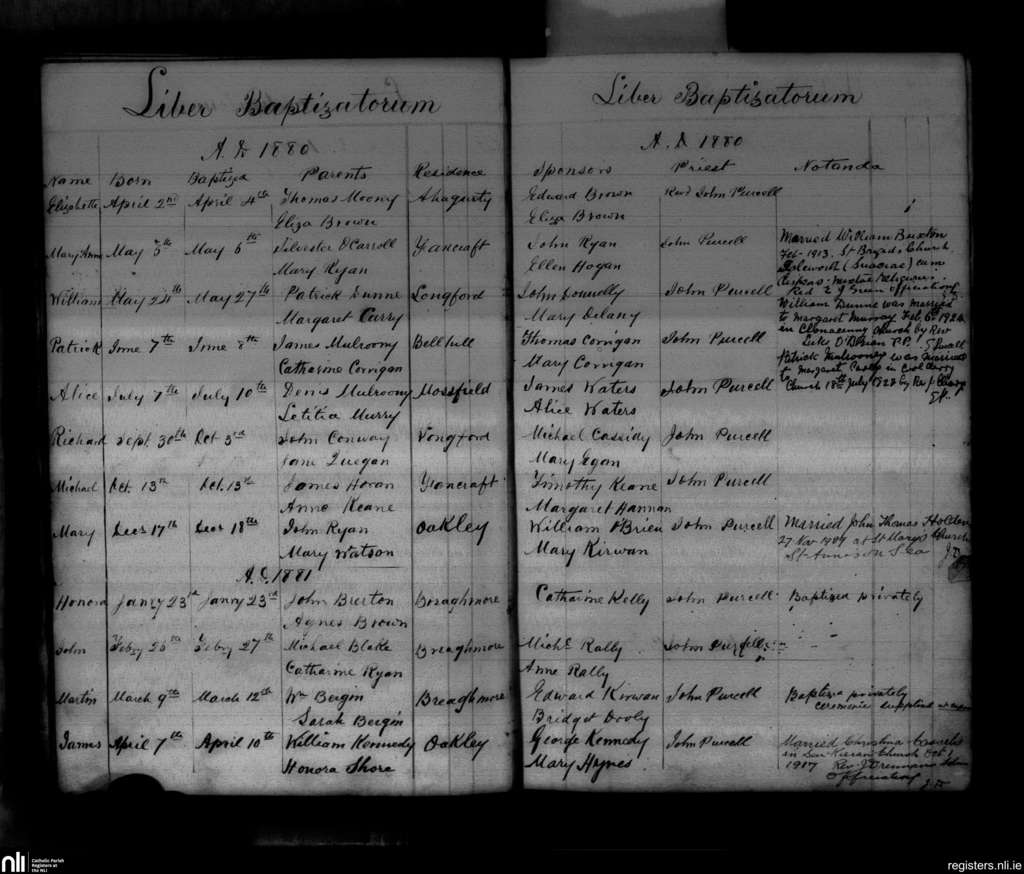 Liber Baptizatorum
A. D. 1880
Name Born Baptized Parents Residence
Elizabette April 2nd April 4th Thomas Moony
Eliza Brown
Mary Anne May 5th May 6th Silvester O'Carroll
Mary Ryan
William May 24th May 27th Patrick Dunne Longford
Margaret Curry
Patrick June 7th June 8th James Mulroony Bellhill
Catharine Corrigan
Alice July 7th July 10th Denis Mulroony Mossfield
Letitia Murry
Richard Sept. 30th Oct 3rd John Conway Longford
Jane Duegan
Michael Oct. 13th Oct. 15th James Horan
Anne Keane
Mary Decr 17th Decr 18th John Ryan Oakley
Mary Watson
A. D. 1881
Honora Janry 23rd Janry 23rd John Brerton Breaghmore
Agnes Brown
John Febry 26th Febry 27th Michael Blake Breaghmore
Catharine Ryan
Martin March 9th March 12th Wm Bergin Breaghmore
Sarah Bergin
James April 7th April 10th William Kennedy Oakley
Honora Shore
Liber Baptizatorum
A. D. 1880
Sponsors Priest Notanda
Edward Brown Revd John Purcell
Eliza Brown
John Ryan John Purcell Married William Buxton
Feb - 1913. St Brigids Church
Ellen Hogan Isleworth
John Donnelly John Purcell
William Dunne was married
Mary Delany to Margaret Murray Feb. 6th 1924
in Clonaceny Church by Rev
Thomas Corrigan John Purcell Luke O'Brien P.P.
Patrick Mulrooney was married
Mary Corrigan to Margaret in Cool derry
James Waters John Purcell Church 18th July 1928 by Rev J. Cleary
Alice Waters
Michael Cassidy John Purcell
Mary Egan
Timothy Keane John Purcell
Margaret Hannan
William O'Brien John Purcell Married John Thomas Holden
27 Nov 1909 at St Mary's Church
Mary Kirwan St Annes on Sea
Catharine Kelly John Purcell Baptized privately
Michl Rally John Purcell
Anne Rally
Edward Kirwan John Purcell Baptized privately
ceremonies supplied
Bridget Dooly
George Kennedy John Purcell Married Christina
in Church Oct 1
Mary Hynes 1917 Rev.
officiating
nli
Catholic Parish
Registers at
the NLI
registers.nli.ie